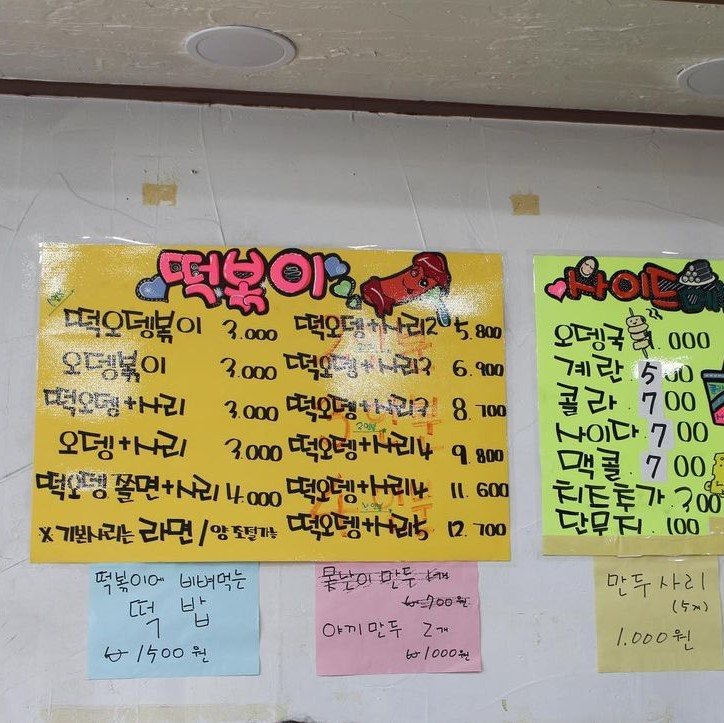 떡볶이
떡오뎅볶이 3.000
오뎅볶이 3.000
떡오뎅+사리 3.000
오뎅+사리 3.000
떡오뎅 쫄면+사리 4.000
※ 기본사리는 라면 / 양 조절가능
떡오뎅+사리2 5.800
떡오뎅+사리2 6.900
떡오뎅+사리3 8.700
떡오뎅+사리4 9.800
떡오뎅+사리4 11.600
떡오뎅+사리5 12.700
사이드
오뎅국 1.000
계란 500
콜라 700
사이다 700
맥콜 700
치즈추가
단무지 .100
떡볶이에 비벼먹는
떡 밥
₩ 1500 원
못난이 만두
₩ 700 원
야끼만두 2개
₩ 1000 원
만두 사리
(5개)
1.000 원